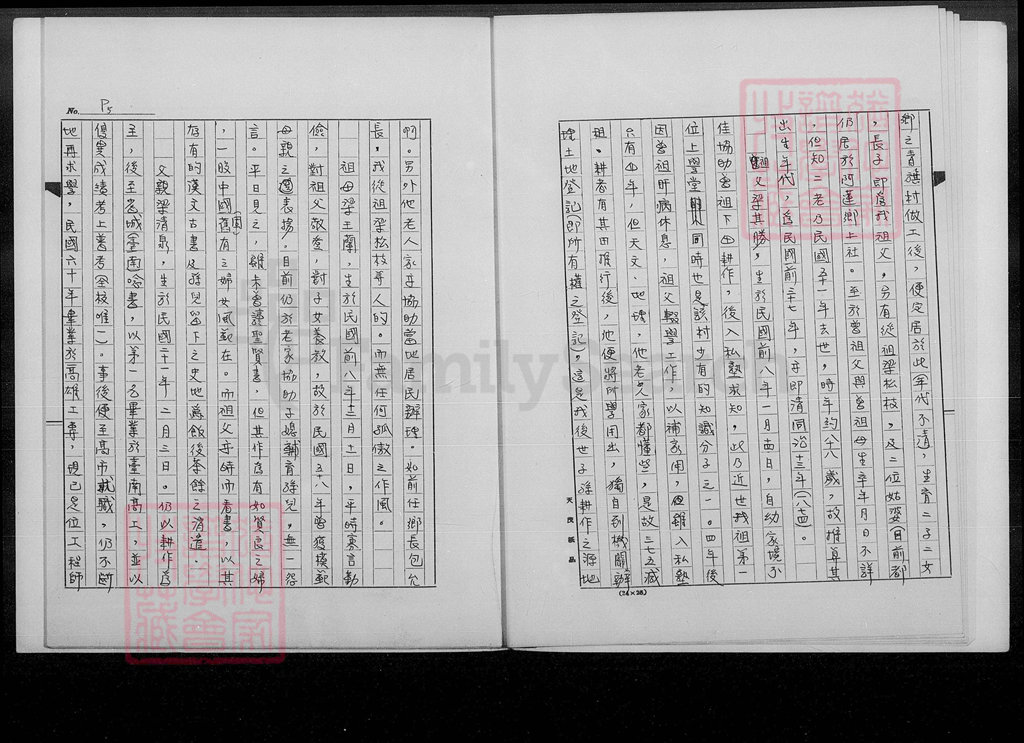 鄉之青旗村做工後，便定居於此（年代不清），生育二子二女
，長子即為我祖父，另有從祖梁松枝，及二位姑婆（目前都
仍居於阿蓮鄉上社。至於曾祖父與曾祖母生卒年月日不詳
，但知二老乃民國五十一年去世，時年約八十八歲，故推算其
出生年代，為民國前三十七年，亦即清同治十三年（一八七四）。
祖父梁其勝，生於民國前八年一月四日，自幼家境不
佳協助曾祖下田耕作，後入私塾求知，此乃近世我祖第一
位上學堂，同時也是該村少有的知識分子之一。四年後
因曾祖肝病休息，祖父輟學工作，以補家用，但雖入私塾
只有四年，但天文、地理，他老人家都懂些，是故三七五減
租。耕者有其田推行後，他便將所學用出，獨自到機關辦
理土地登記（即所有權之登記），這是我後世子孫耕作之源地
天茂紙品
(24×25)
No. P5
啊。另外他老人家亦協助當地居民辦理。如前任鄉長包公
長，我從祖梁松枝等人的。而無任何孤傲之作風。
祖母梁王蘭，生於民國前八年十二月十一日，平時寡言勤
儉，對祖父敬愛，對子女養教，故於民國五十八年曾獲模範
母親之表揚。目前仍於老家協助子媳輔育孫兒，無一怨
言。平日見之，雖未曾讀聖賢書，但其作為有如賢良之婦
，一股中國固舊有之婦女風範在。而祖父亦時而看書，以其
存有的漢文古書及孫兒留下之史地為飯後茶餘之消遣。
父親梁清泉，生於民國二十一年二月三日。仍以耕作為
主，後至省城（臺南唸書，以第一名畢業於臺南高工，並以
優異成績考上普考（全校唯一）。事後便至高市就職，仍不斷
地再求學，民國六十年畢業於高雄工專，現已是位工程師
FamilySearch